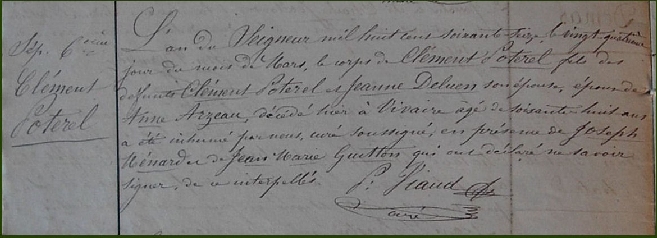 Sép. Ecclés.
Clément
Poterel
L'an du Seigneur mil huit cent soixante seize, le vingt quatrième
jour du mois de Mars, le corps de Clément Poterel fils des
défunts Clément Poterel et Jeanne Deluen son épouse, époux de
Anna Arzeau, décédé hier à Vivaire âgé de soixante huit ans
a été inhumé par nous, curé soussigné, en présence de Joseph
Ménard et de Jean Marie Guitton qui ont déclaré ne savoir
signer, de ce interpellés.
P. Piaud
curé